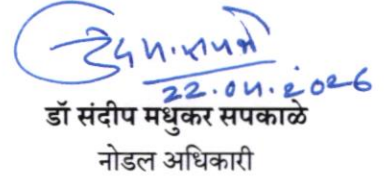 22.04.2026
डॉ संदीप मधुकर सपकाळे
नोडल अधिकारी